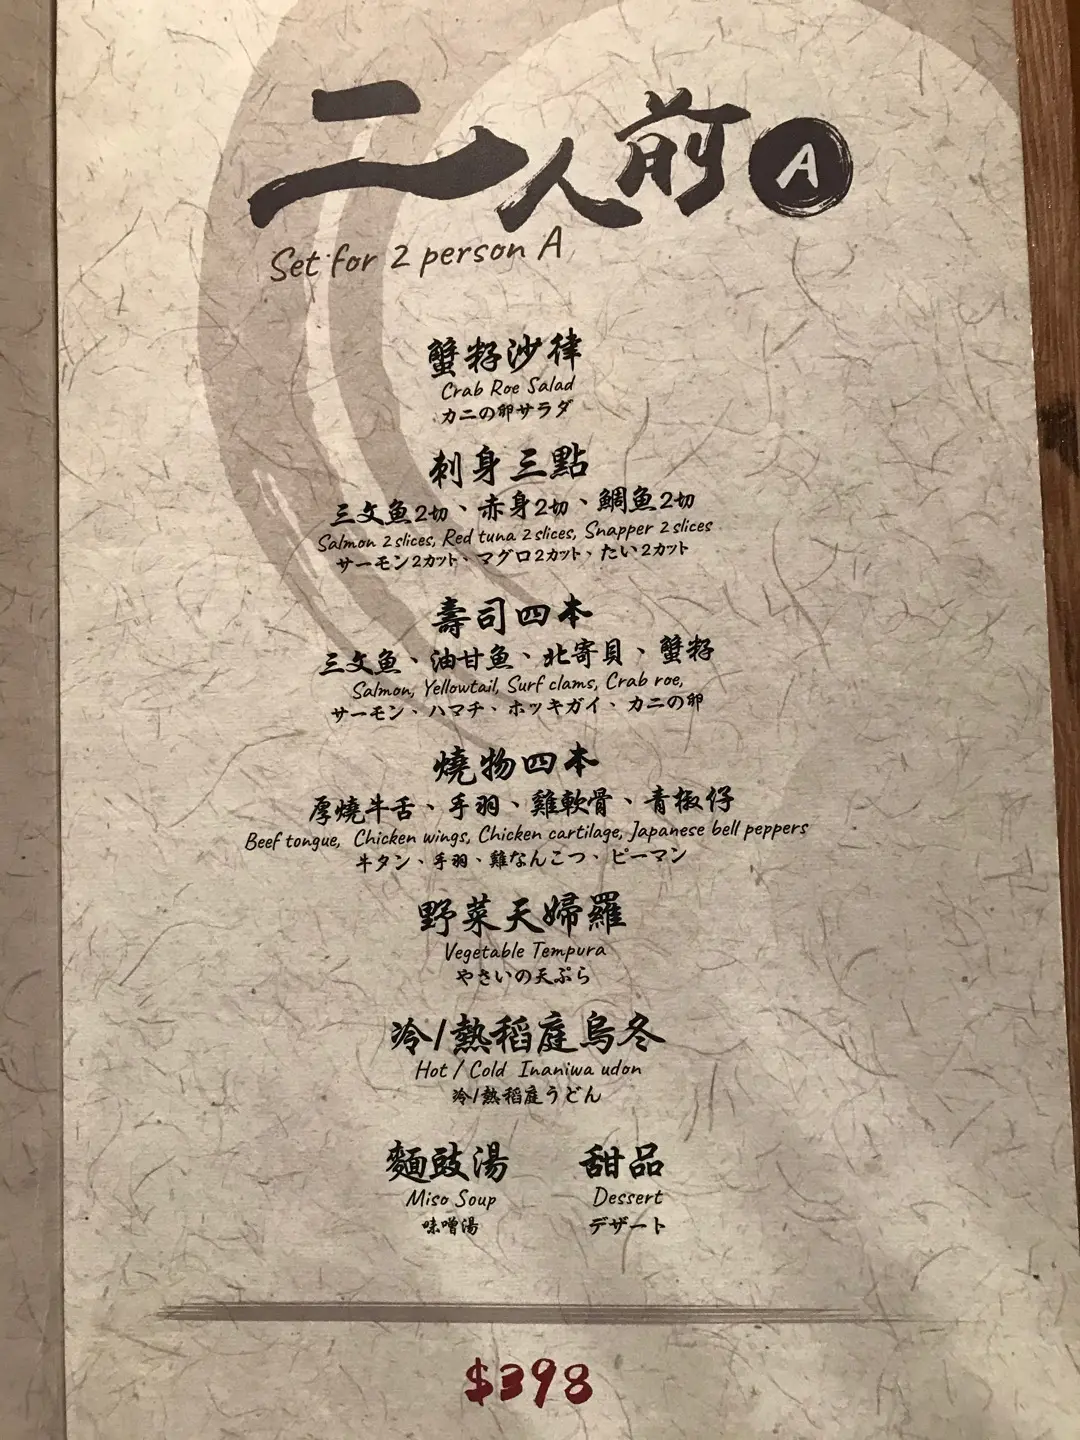 二人前 A
Set for 2 person A
蟹籽沙律
Crab Roe Salad
カニの卵サラダ
刺身三點
三文魚2切、赤身2切、鯛魚2切
Salmon 2 slices, Red tuna 2 slices, Snapper 2 slices
サーモン2カット、マグロ2カット、たい2カット
壽司四本
三文魚、油甘魚、北寄貝、蟹籽
Salmon, Yellowtail, Surf clams, Crab roe,
サーモン、ハマチ、ホッキガイ、カニの卵
燒物四本
厚燒牛舌、手羽、雞軟骨、青椒仔
Beef tongue, Chicken wings, Chicken cartilage, Japanese bell peppers
牛タン、手羽、雞なんこつ、ピーマン
野菜天婦羅
Vegetable Tempura
やさいの天ぷら
冷/熱稻庭烏冬
Hot / Cold Inaniwa udon
冷/熱稻庭うどん
麵豉湯 甜品
Miso Soup Dessert
味噌湯 デザート
$398